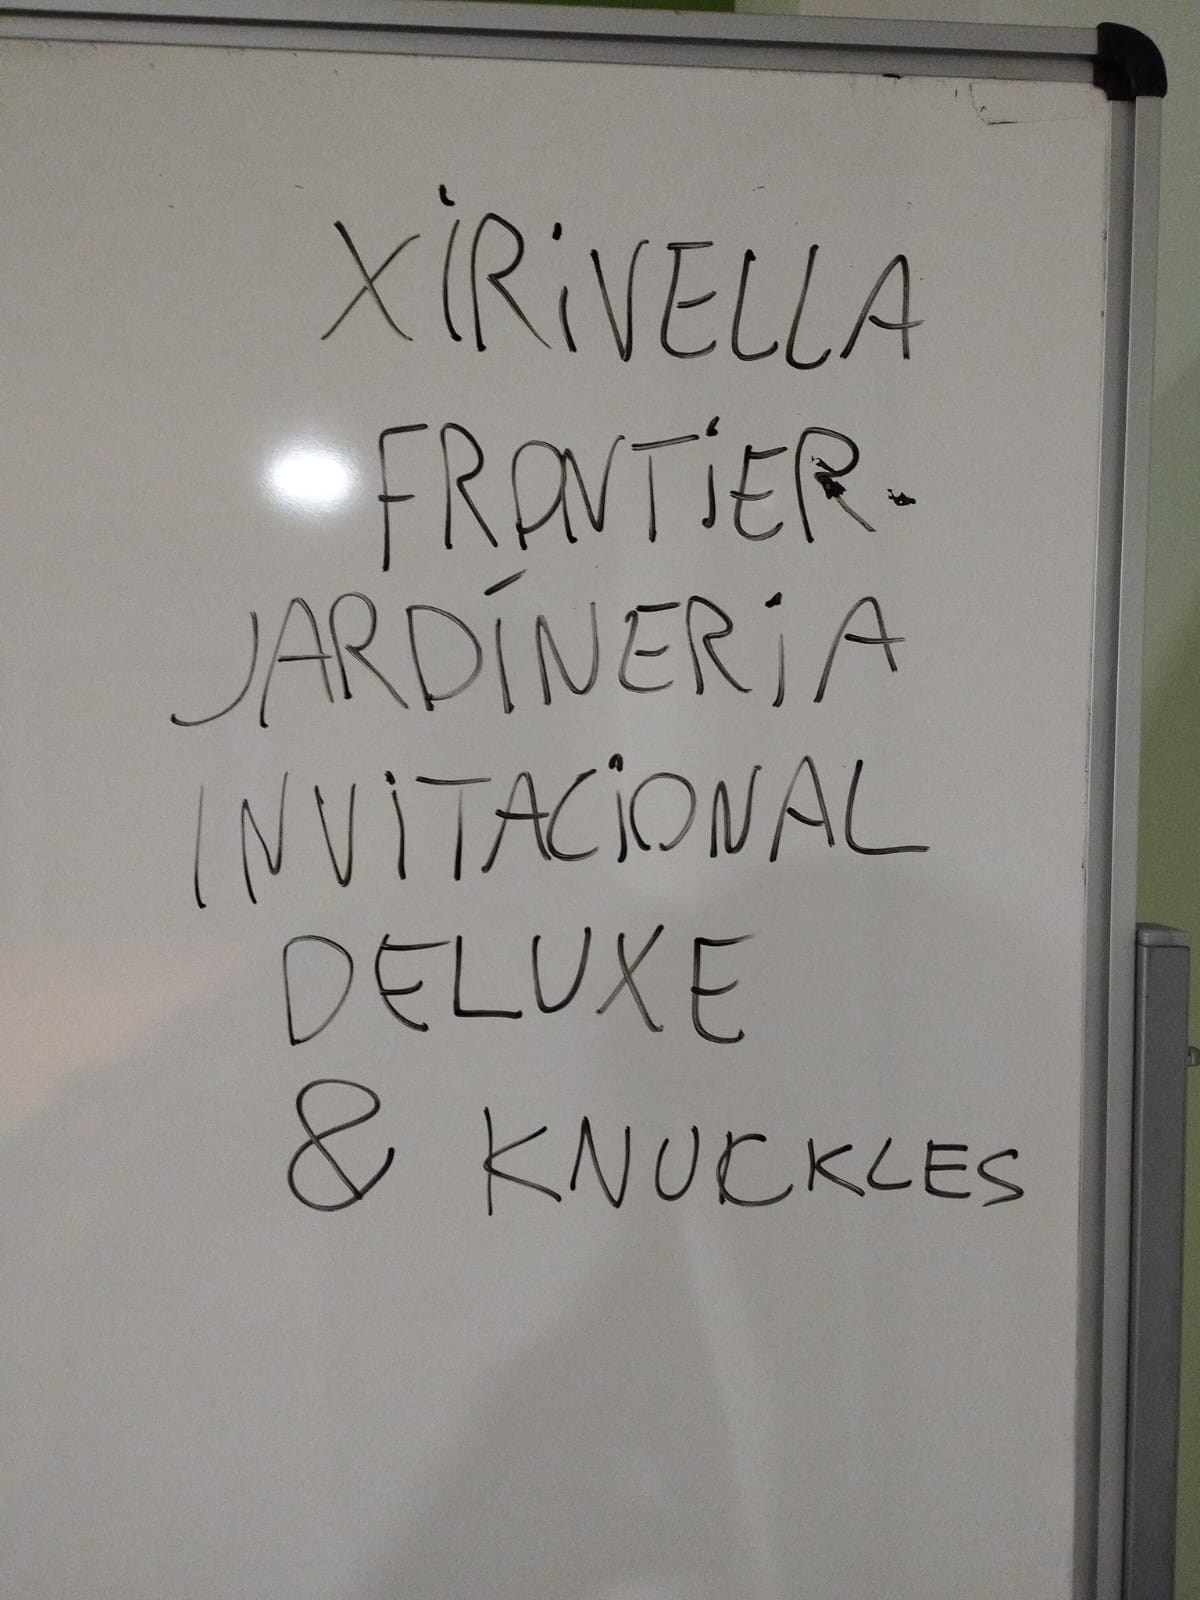 XIRIVELLA
FRONTIER.
JARDÍNERIA
INVITACIONAL
DELUXE
& KNUCKLES